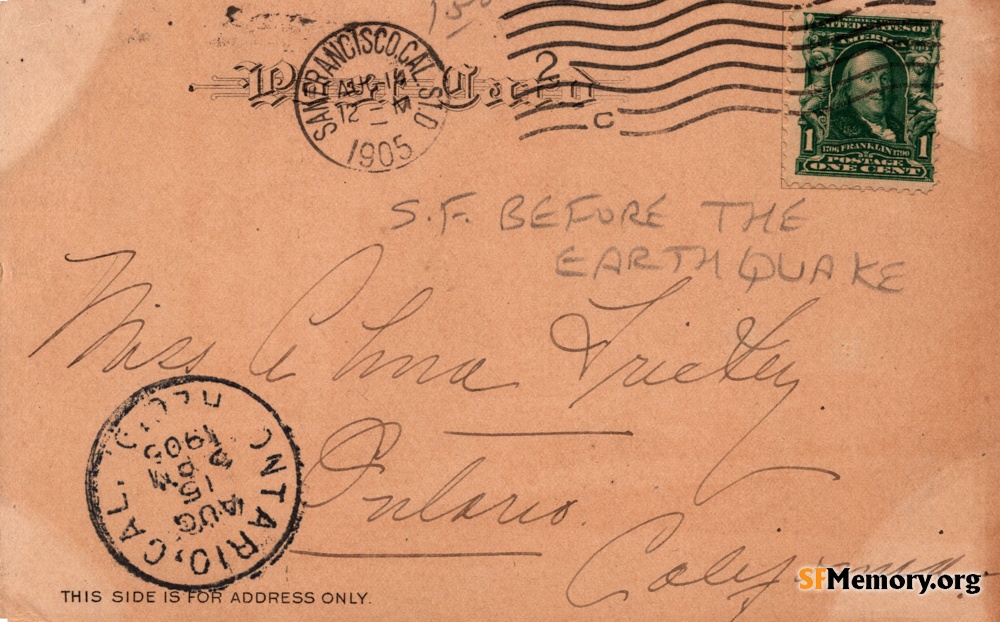 150
SERIES 1902
UNITED STATES OF
AMERICA
1706 FRANKLIN 1790
1 1
POSTAGE
ONE CENT
SAN FRANCISCO, CAL. STA. D
AUG 14
12 - M
1905
2
C
Postal Card
S.F. BEFORE THE
EARTHQUAKE
Miss Alma
Ontario.
California.
ONTARIO, CAL.
REC'D.
AUG
15
A M
1905
THIS SIDE IS FOR ADDRESS ONLY.
SFMemory.org